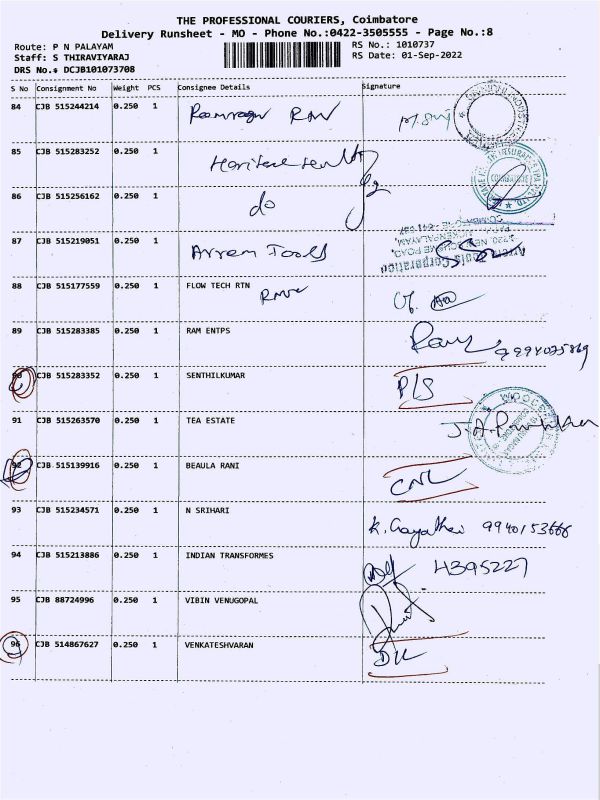 THE PROFESSIONAL COURIERS, Coimbatore
Delivery Runsheet - MO - Phone No.:0422-3505555 - Page No.:8
Route: P N PALAYAM RS No.: 1010737
Staff: S THIRAVIYARAJ RS Date: 01-Sep-2022
DRS No.$ DCJB101073708
S No Consignment No Weight PCS Consignee Details Signature
84 CJB 515244214 0.250 1
85 CJB 515283252 0.250 1
86 CJB 515256162 0.250 1 do
87 CJB 515219051 0.250 1 Arrem Tools
88 CJB 515177559 0.250 1 FLOW TECH RTN
89 CJB 515283385 0.250 1 RAM ENTPS
90 CJB 515283352 0.250 1 SENTHILKUMAR P/S
91 CJB 515263570 0.250 1 TEA ESTATE
92 CJB 515139916 0.250 1 BEAULA RANI CNL
93 CJB 515234571 0.250 1 N SRIHARI K. Gayathri 9940153666
94 CJB 515213886 0.250 1 INDIAN TRANSFORMES 4395227
95 CJB 88724996 0.250 1 VIBIN VENUGOPAL
96 CJB 514867627 0.250 1 VENKATESHVARAN DL